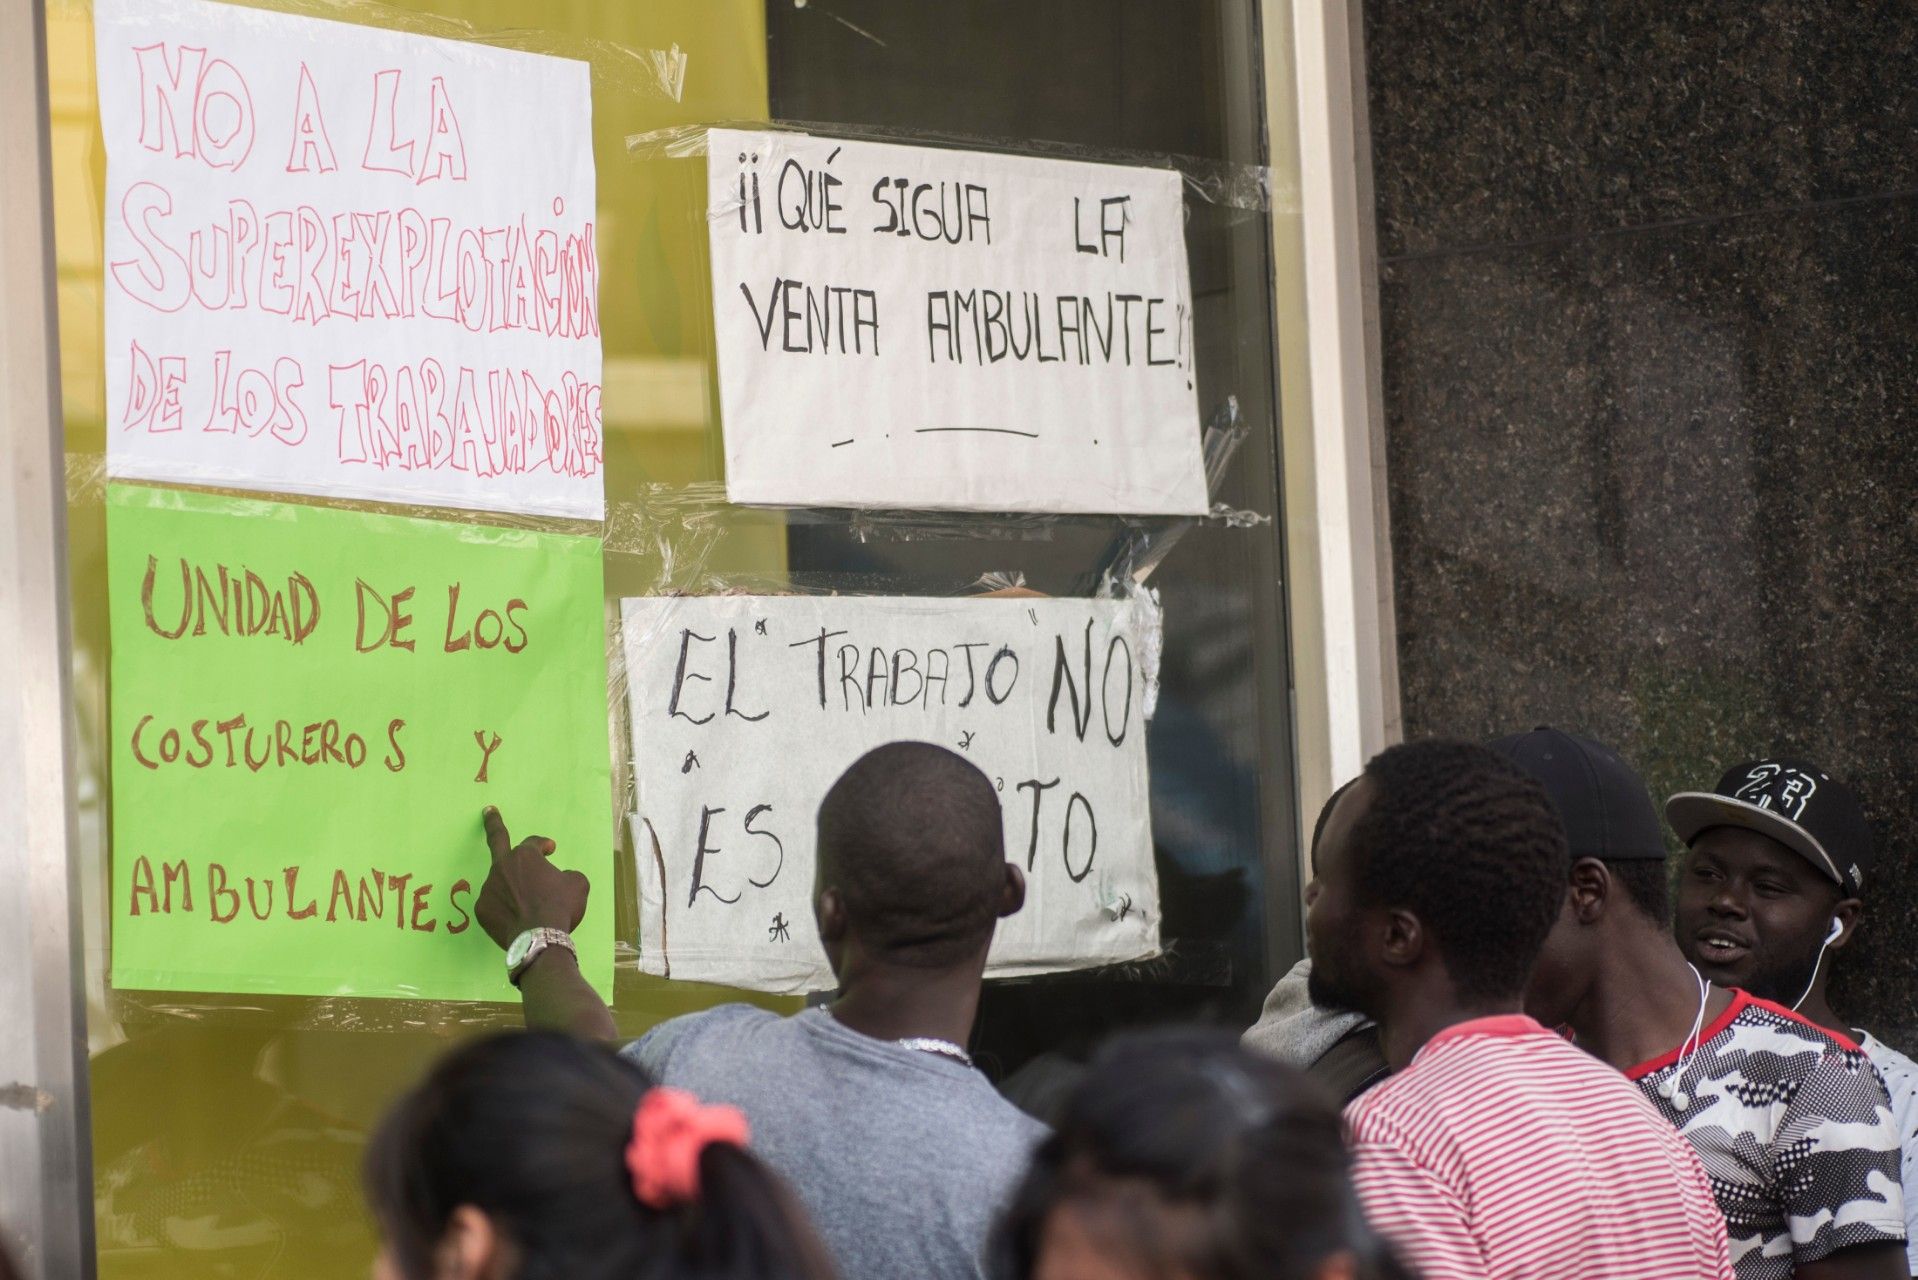 NO A LA
SUPEREXPLOTACIÓN
DE LOS TRABAJADORES
¡¡QUÉ SIGUA LA
VENTA AMBULANTE!!
UNIDAD DE LOS
COSTUREROS Y
AMBULANTES
EL TRABAJO NO
ES
23